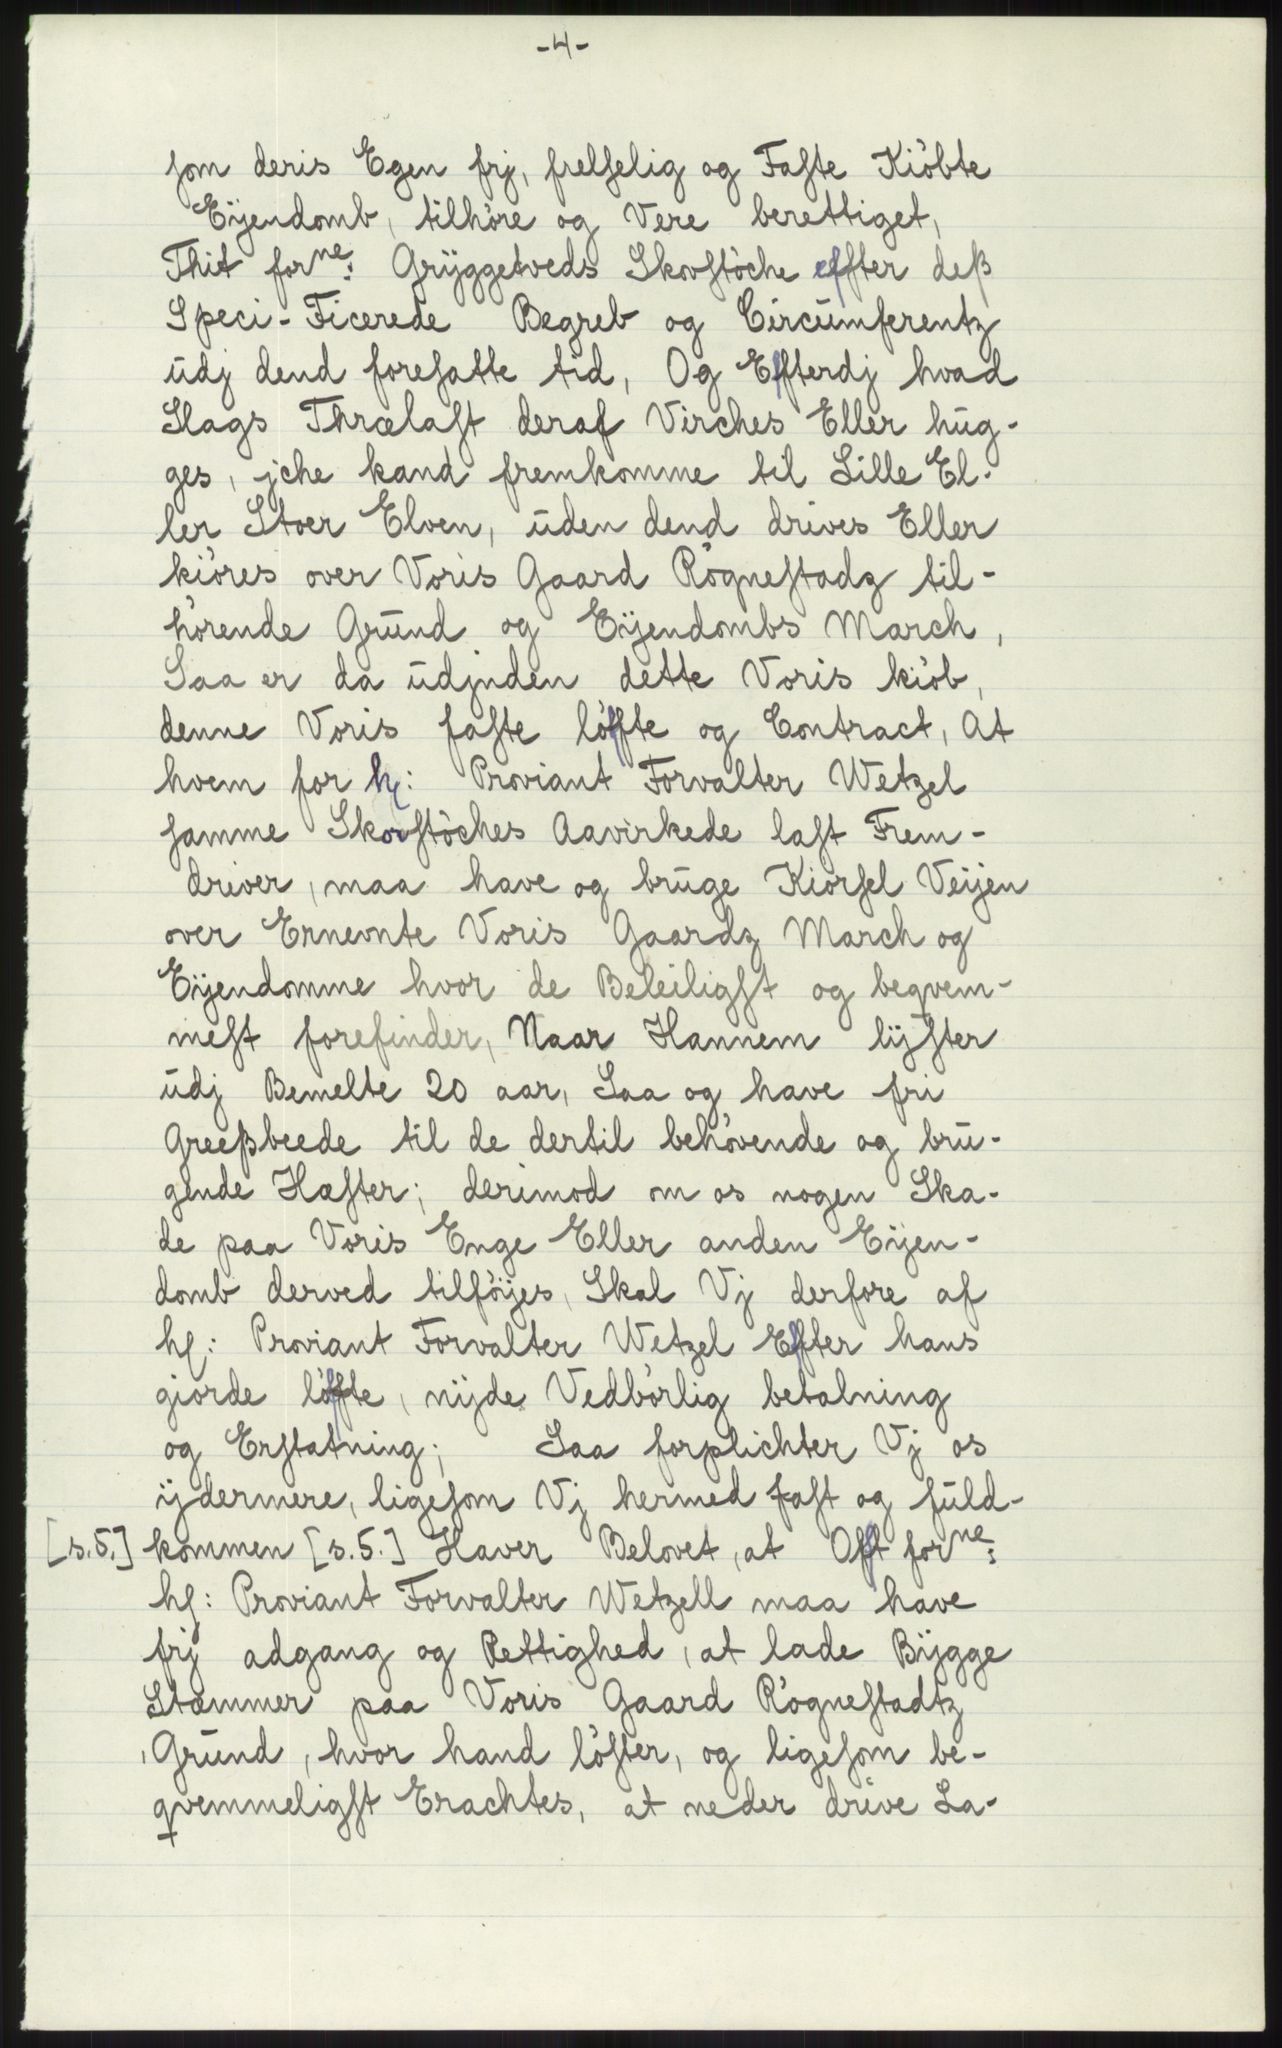 -4-
som deris Egen frj, frelselig og Faste Kiöbte
Eÿendomb, tilhöre og Vere berettiget,
Thit forne: Grÿggetveds Skovstöche effter deß
Speci-Ficerede Begreb og Circumferentz
udj dend foresatte tid, Og Effterdj hvad
Slags Thrælast deraf Virches Eller hug-
ges, jche kand fremkomme til Lille El-
ler Stoer Elven, uden dend drives Eller
kiöres over Voris Gaard Rögnestadz til-
hörende Grund og Eÿendombs March,
Saa er da udjnden dette Voris kiöb,
denne Voris faste löffte og Contract, At
hvem for h/: Proviant Forvalter Wetzel
samme Skovstöches Aavirkede last Frem-
driver, maa have og bruge Kiorsel Veÿen
over Ernevnte Voris Gaardz March og
Eÿendomme hvor de Beleiligst og beqvem-
mest forefinder, Naar Hannem lÿster
udj Bemelte 20 aar, Saa og have fri
Greeßbeede til de dertil behövende og bru-
gende Hæster; derimod om os nogen Ska-
de paa Voris Enge Eller anden Eÿen-
domb derved tilföÿes, Skal Vj derfore af
h/: Proviant Forvalter Wetzel Effter hans
giorde löffte, nÿde Vedbörlig betalning
og Erstatning; Saa forplichter Vj os
ÿdermere, ligesom Vj hermed fast og fuld-
[s.5.] kommen [s.5.] Haver Belovet, at Offt forne:
h/: Proviant Forvalter Wetzell maa have
frj adgang og Rettighed, at lade Bÿgge
Stæmmer paa Voris Gaard Rögnestadtz
Grund, hvor hand löster, og ligesom be-
qvemmeligst Erachtes, at neder drive La-